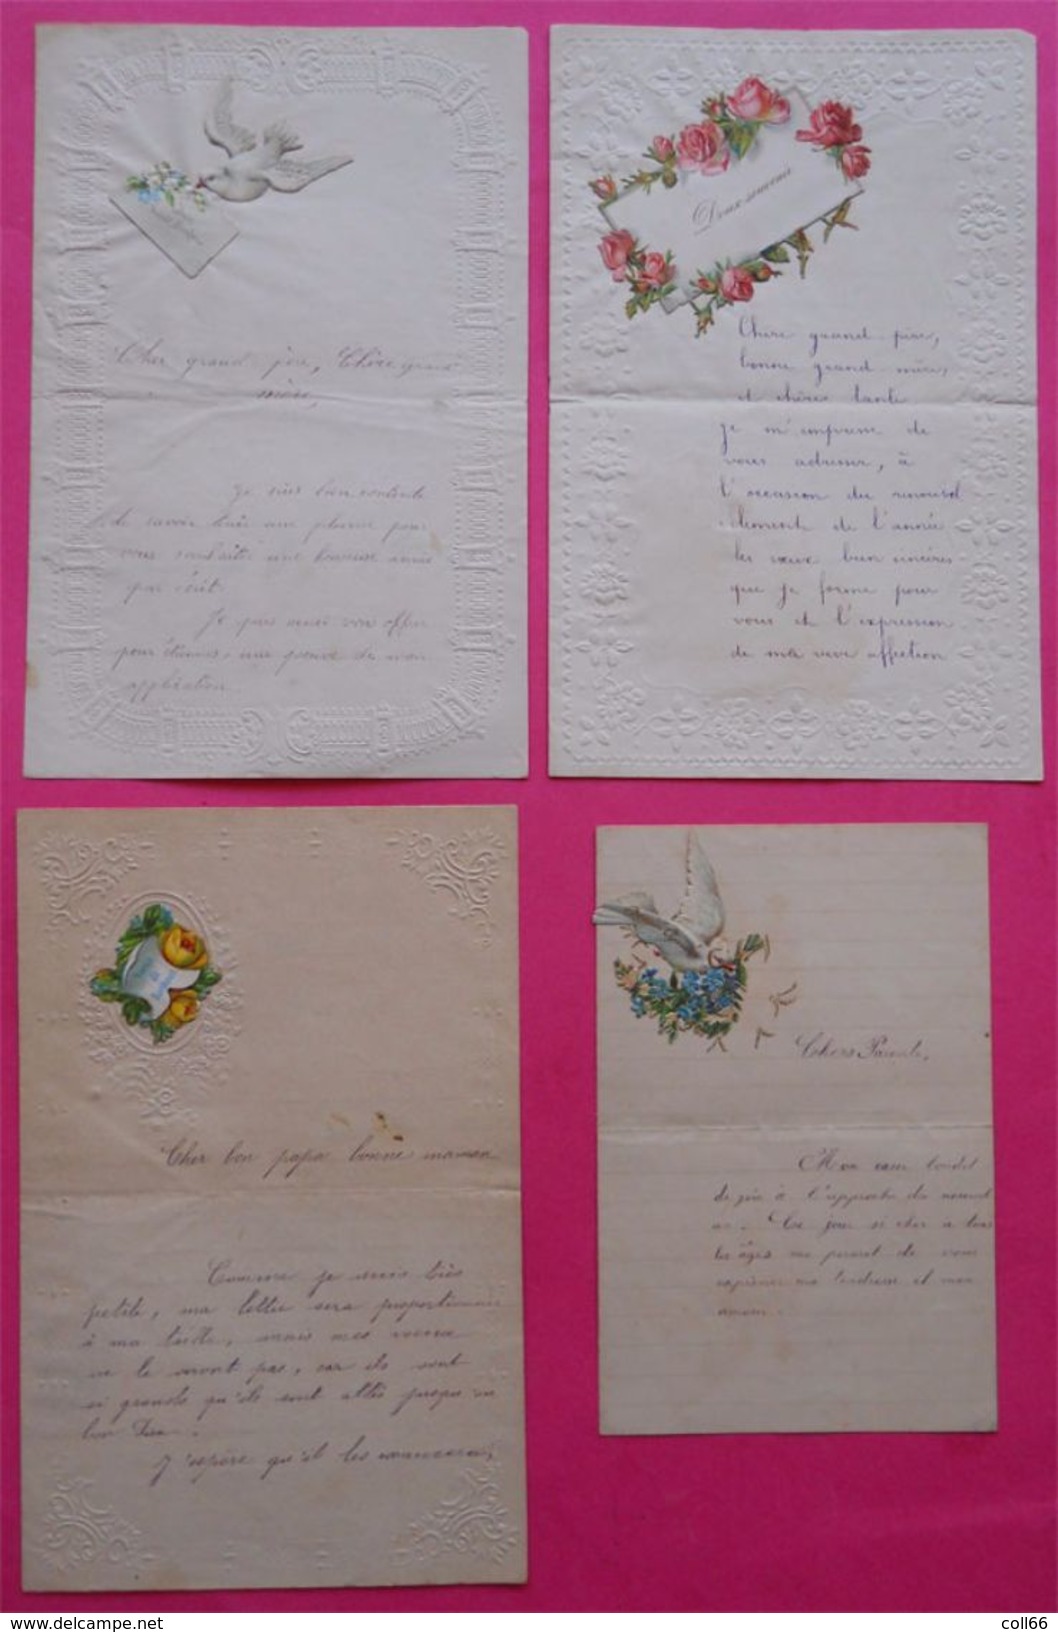 Cher grand père, Chère grand
mère,
Je suis bien contente
de savoir une plume pour
vous souhaiter une heureuse année
par écrit.
Je puis aussi vous offrir
pour étrennes une preuve de mon
application.
Doux souvenir
Chere grand père,
bonne grand mère,
et chères tante
je m'empresse de
vous adresser, à
l'occasion du renouvel
lement de l'année
les vœux bien sincères
que je forme pour
vous et l'expression
de ma vive affection
Cher bon papa bonne maman
Comme je suis très
petite, ma lettre sera proportionnée
à ma taille, mais mes vœux
ne le seront pas, car ils sont
si grands qu'ils sont allés jusqu'au
bon Dieu.
J'espère qu'il les exaucera,
Chers Parents,
Mon cœur bondit
de joie à l'approche du nouvel
an. Ce jour si cher à tous
les âges me permet de vous
exprimer ma tendresse et mon
amour.
www.delcampe.net
coll66